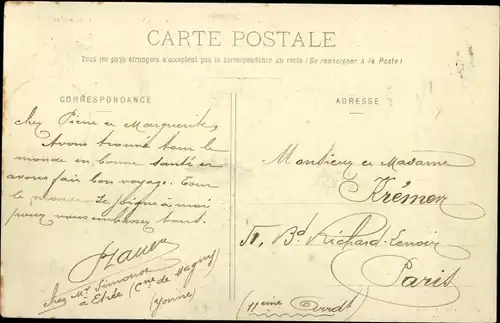 CARTE POSTALE
Tous les pays étrangers n'acceptent pas la correspondance au recto (Se renseigner à la Poste)
CORRESPONDANCE
ADRESSE
Cher Pierre et Marguerite,
Avons trouvé tout le
monde en bonne santé et
avons fait bon voyage. Tout
le monde se joigne à moi
pour vous embrasser tous.
chez Mr Simonot
à Etrée (Cne de Magny)
(Yonne)
Monsieur et Madame
Krémer
51, Bd Richard-Lenoir
Paris
(11ème Arrdt)